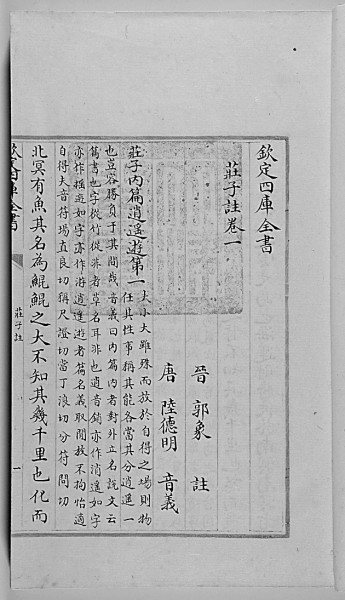 欽定四庫全書
莊子註卷一
晉 郭象 註
唐 陸德明 音義
莊子內篇逍遙遊第一
夫小大雖殊而放於自得之場則物
任其性事稱其能各當其分逍遥一
也豈容勝負于其間哉音義曰内篇内者對外立名說文云
篇書也字從竹從草者草名耳非也逍音銷亦作消遥如字
亦作摇遊如字亦作游逍遥遊者篇名義取閒放不拘怡適
自得夫音符場直良切稱尺證切當丁浪切分符問切
北冥有魚其名為鯤鯤之大不知其幾千里也化而
欽定四庫全書
莊子註
一